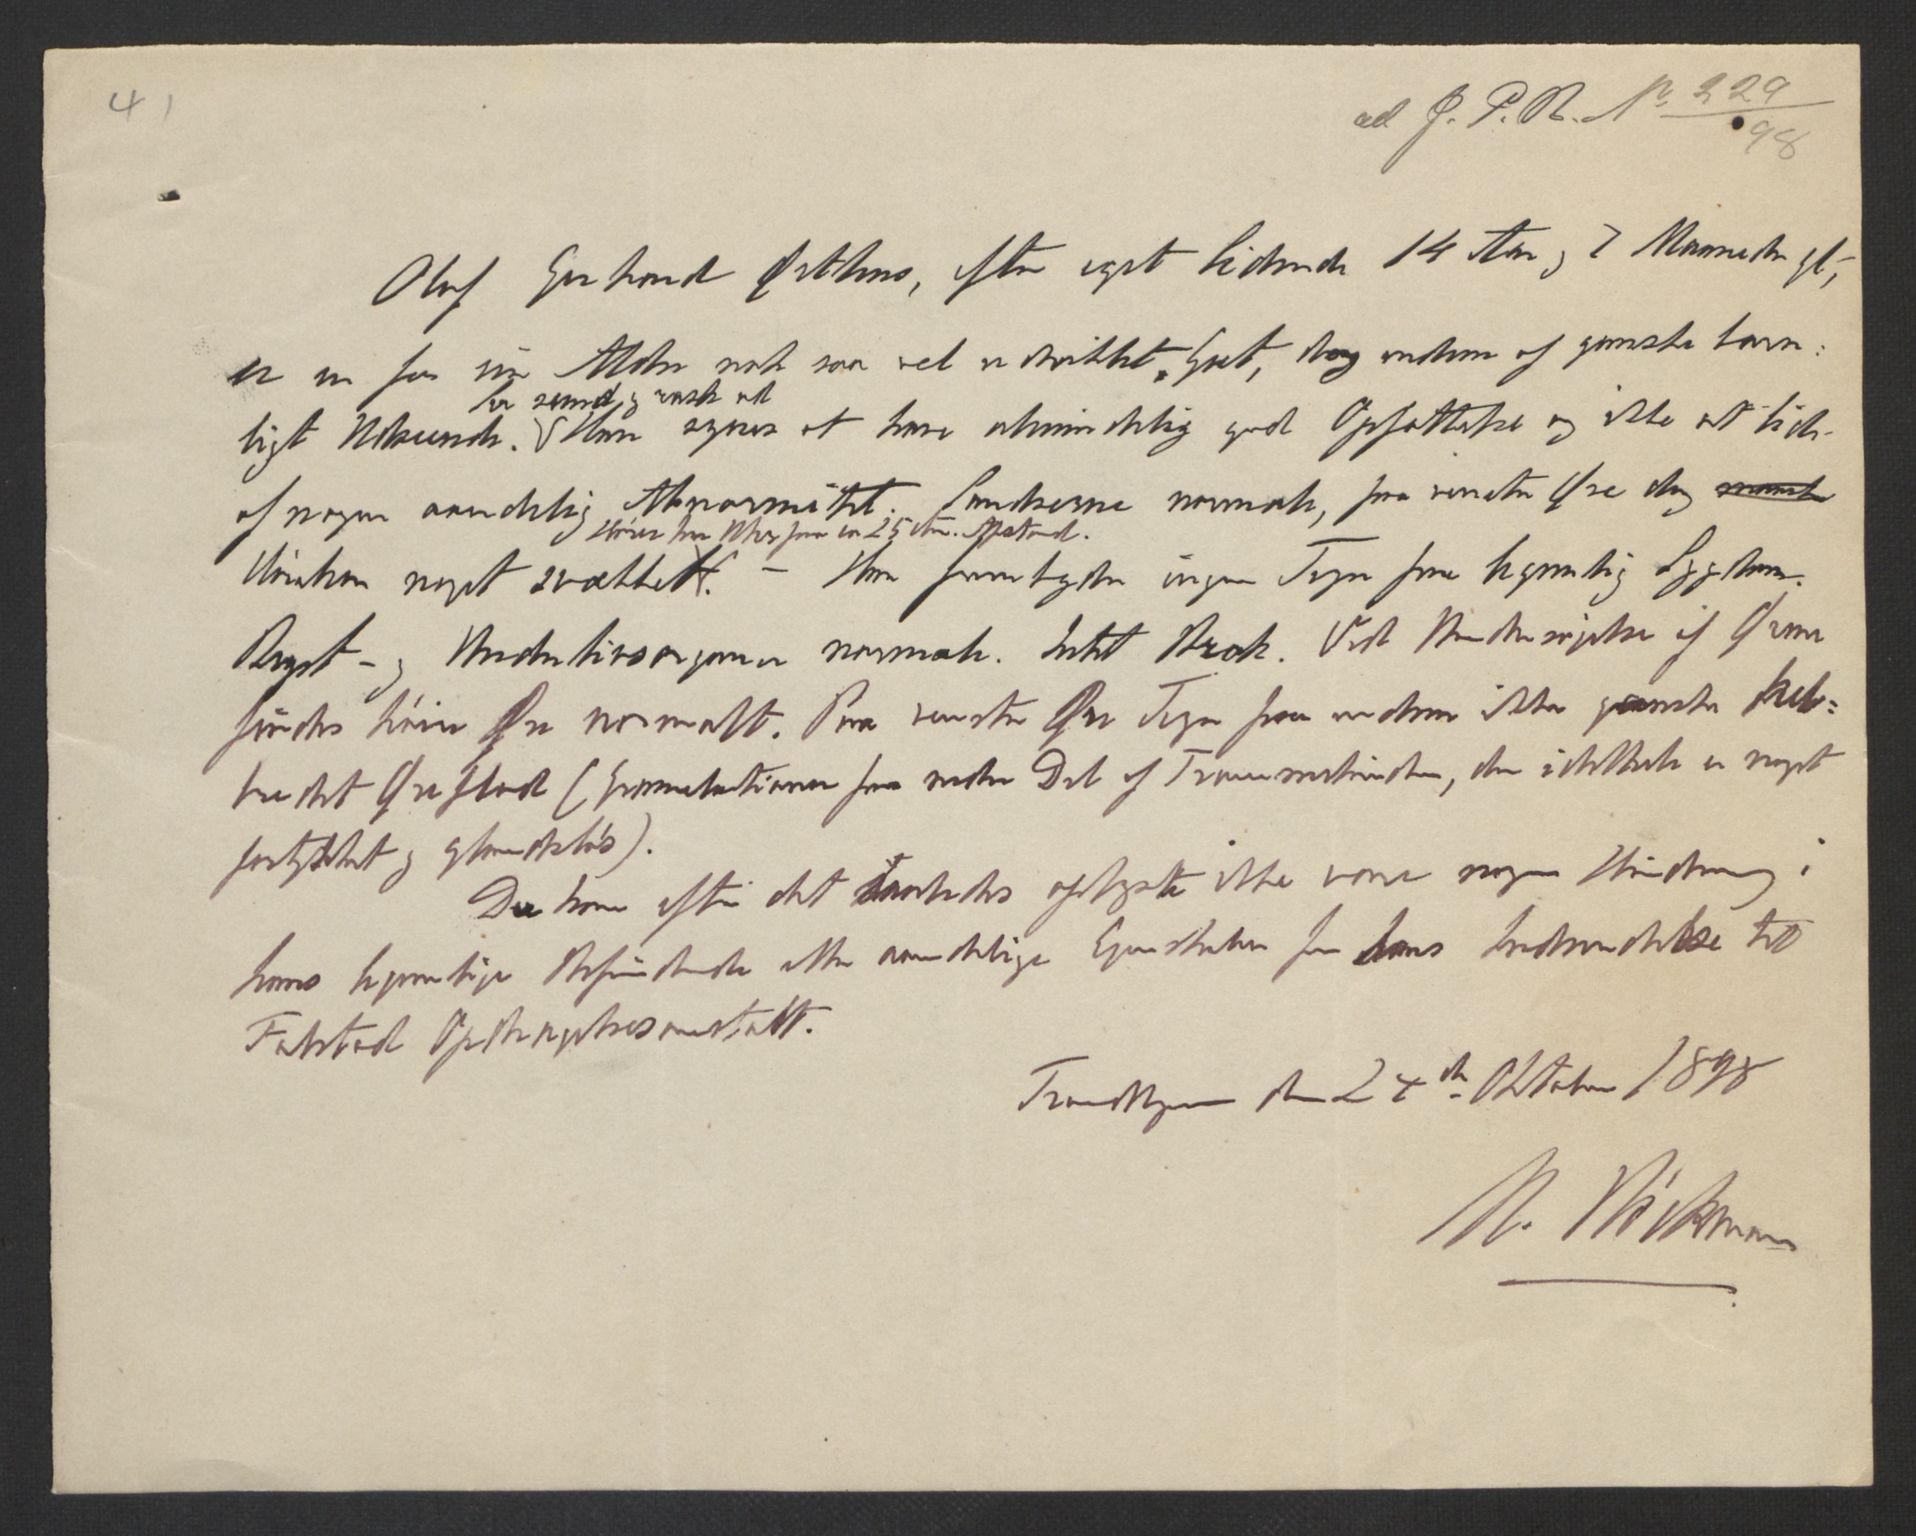 41
ad J. P. R. No 229/98
Oluf Gerhard Østhus, efter eget Sigende 14 Aar og 7 Maaneder gl.,
er en for sin Alder nok saa vel udviklet Gut, dog endnu af ganske barn-
ligt Udseende.
ser sund og rask ud
Han synes at have almindelig god Opfattelse og ikke at lide
af nogen aandelig Abnormitet. Sandserne normale, paa venstre Øre dog
Hører her Uhr paa ca 25 ctm. Afstand.
Hørselen noget svækket. - Han frembyder ingen Tegn paa legemlig Sygdom.
Bryst- og Underlivsorganer normale. Intet Brok. Ved Undersøgelse af Ørene
findes høire Øre normalt. Paa venstre Øre Tegn paa endnu ikke ganske hel-
bredet Øreflod (Granulationer paa nedre Del af Trommehinden, der idethele er noget
fortykket og glandsløs).
Der kan efter det saaledes oplyste ikke være nogen Hindring i
hans legemlige Befindende eller aandelige Egenskaber for hans Indsendelse til
Falstad Opdragelsesanstalt.
Trondhjem den 24de Oktober 1898